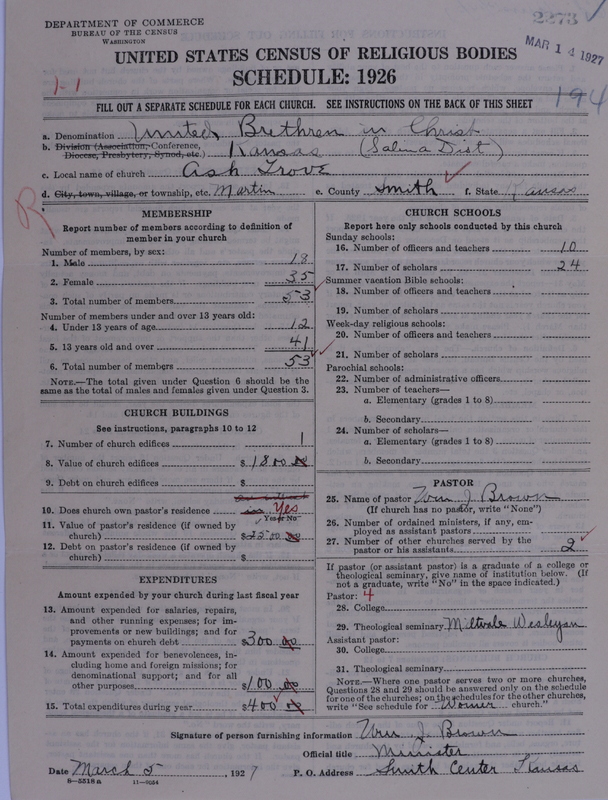 DEPARTMENT OF COMMERCE
BUREAU OF THE CENSUS
WASHINGTON
2273
MAR 14 1927
UNITED STATES CENSUS OF RELIGIOUS BODIES
SCHEDULE: 1926
1-1
194
FILL OUT A SEPARATE SCHEDULE FOR EACH CHURCH. SEE INSTRUCTIONS ON THE BACK OF THIS SHEET
a. Denomination United Brethren in Christ
b. Division (Association, Conference, Diocese, Presbytery, Synod, etc.) Kansas (Salina Dist)
c. Local name of church Ash Grove
d. City, town, village, or township, etc. Martin e. County Smith f. State Kansas
R
MEMBERSHIP
Report number of members according to definition of
member in your church
Number of members, by sex:
1. Male 18
2. Female 35
3. Total number of members 53
Number of members under and over 13 years old:
4. Under 13 years of age 12
5. 13 years old and over 41
6. Total number of members 53
NOTE.—The total given under Question 6 should be the
same as the total of males and females given under Question 3.
CHURCH BUILDINGS
See instructions, paragraphs 10 to 12
7. Number of church edifices 1
8. Value of church edifices $1800 00
9. Debt on church edifices $
10. Does church own pastor's residence Yes
Yes or No
11. Value of pastor's residence (if owned by
church) $2500 00
12. Debt on pastor's residence (if owned by
church) $
EXPENDITURES
Amount expended by your church during last fiscal year
13. Amount expended for salaries, repairs,
and other running expenses; for im-
provements or new buildings; and for
payments on church debt $300 00
14. Amount expended for benevolences, in-
cluding home and foreign missions; for
denominational support; and for all
other purposes $100 00
15. Total expenditures during year $400 00
CHURCH SCHOOLS
Report here only schools conducted by this church
Sunday schools:
16. Number of officers and teachers 10
17. Number of scholars 24
Summer vacation Bible schools:
18. Number of officers and teachers
19. Number of scholars
Week-day religious schools:
20. Number of officers and teachers
21. Number of scholars
Parochial schools:
22. Number of administrative officers
23. Number of teachers—
a. Elementary (grades 1 to 8)
b. Secondary
24. Number of scholars—
a. Elementary (grades 1 to 8)
b. Secondary
PASTOR
25. Name of pastor Wm J. Brown
(If church has no pastor, write "None")
26. Number of ordained ministers, if any, em-
ployed as assistant pastors
27. Number of other churches served by the
pastor or his assistants 2
If pastor (or assistant pastor) is a graduate of a college or
theological seminary, give name of institution below. (If
not a graduate, write "No" in the space indicated.)
Pastor: 4
28. College
29. Theological seminary Miltvale Wesleyan
Assistant pastor:
30. College
31. Theological seminary
NOTE.—Where one pastor serves two or more churches,
Questions 28 and 29 should be answered only on the schedule
for one of the churches; on the schedules for the other churches,
write "See schedule for Womer church."
Signature of person furnishing information Wm J. Brown
Official title Minister
Date March 5, 1927 P. O. Address Smith Center Kansas
8—5518 a 11—9654